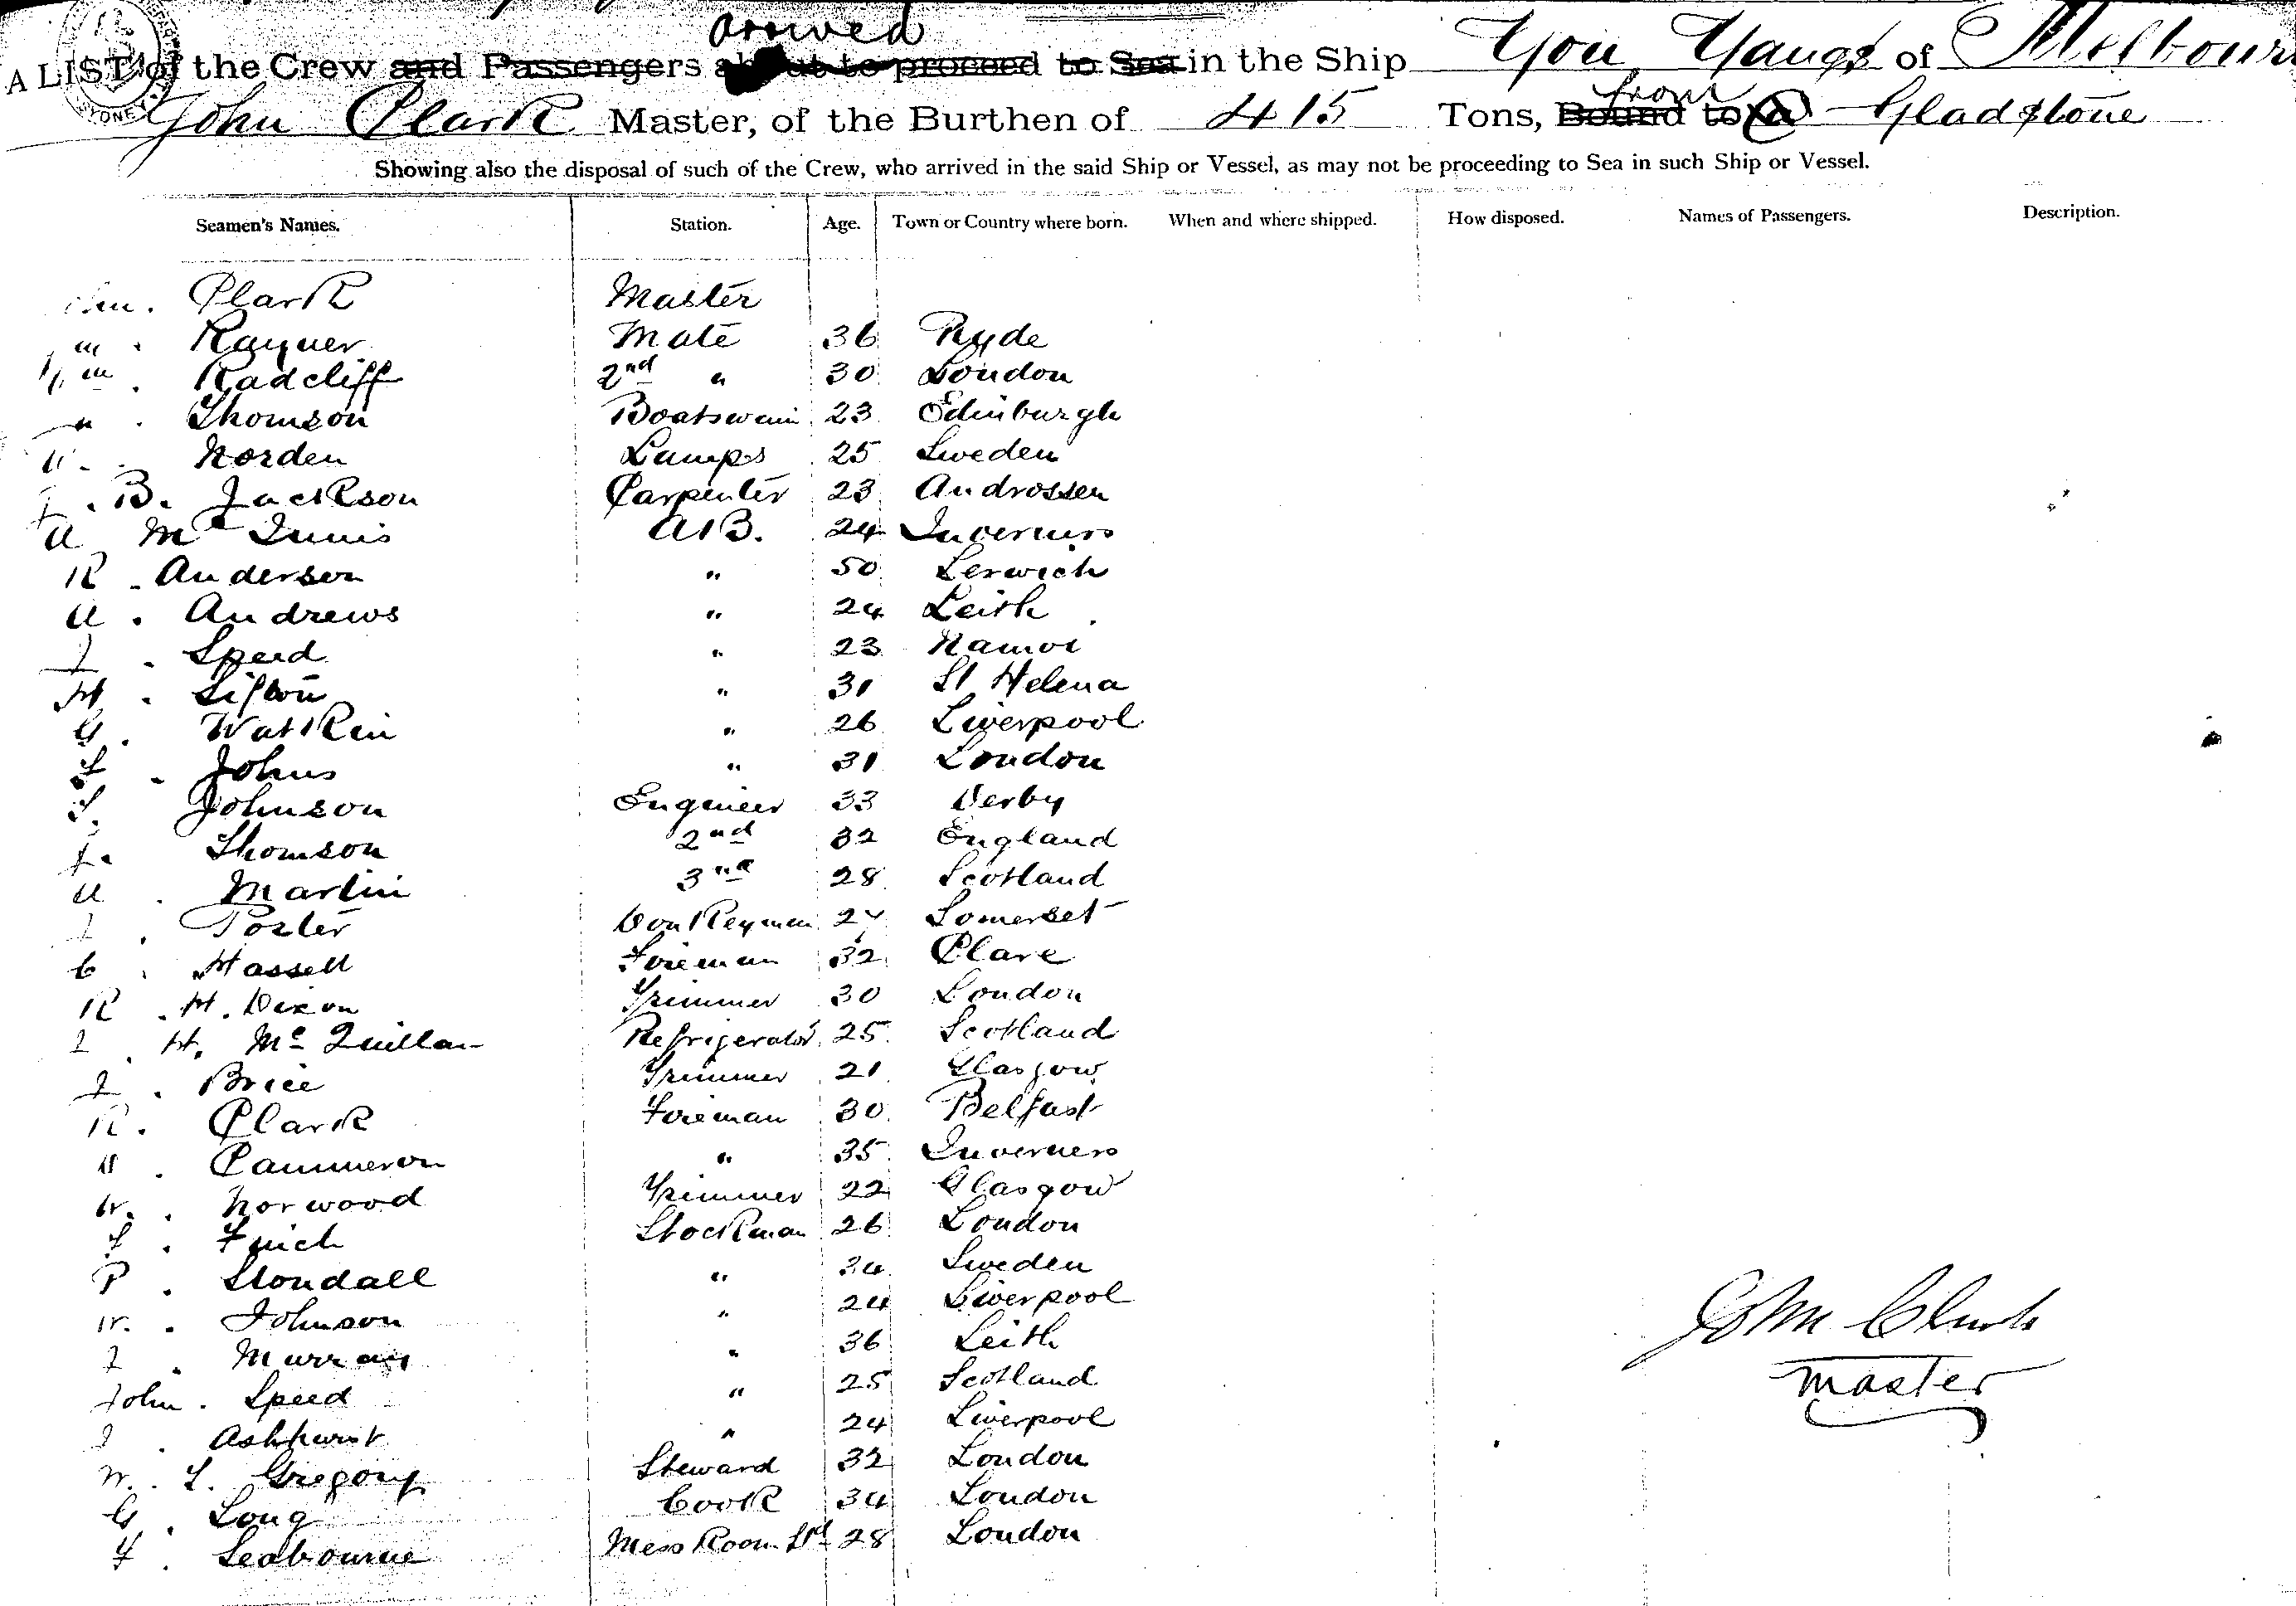 arrived
A LIST of the Crew and Passengers about to proceed to Sea in the Ship You Yangs of Melbour
John Clark Master, of the Burthen of 415 Tons, Bound to from Gladstone
Showing also the disposal of such of the Crew, who arrived in the said Ship or Vessel, as may not be proceeding to Sea in such Ship or Vessel.
Seamen's Names. Station. Age. Town or Country where born. When and where shipped. How disposed. Names of Passengers. Description.
Clark Master
Rayner Mate 36 Ryde
Radcliff 2nd " 30 London
Thomson Boatswain 23 Edinburgh
Norden Lamps 25 Sweden
B. Jackson Carpenter 23 Androssen
A Mc Innis A B. 24 Inverness
R. Anderson " 50 Lerwich
A. Andrews " 24 Leith
J. Speed " 23 Namoi
H. Sifton " 31 St Helena
G. Watkin " 26 Liverpool
Johns " 31 London
Johnson Engineer 33 Derby
Thomson 2nd 32 England
A. Martin 3rd 28 Scotland
Porter Donkeyman 27 Somerset
C. Hassell Fireman 32 Clare
R. H. Dixon Trimmer 30 London
J. H. Mc Quillan Refrigerator 25 Scotland
J. Brice Trimmer 21 Glasgow
R. Clark Fireman 30 Belfast
Cammeron " 35 Inverness
W. Norwood Trimmer 22 Glasgow
Finch Stockman 26 London
P. Stondall " 34 Sweden
W. Johnson " 24 Liverpool
J. Murray " 36 Leith
John. Speed " 25 Scotland
J. Ashhurst " 24 Liverpool
W. T. Gregory Steward 32 London
G. Long Cook 34 London
F. Seabourne Mess Room Std 28 London
John Clark
Master